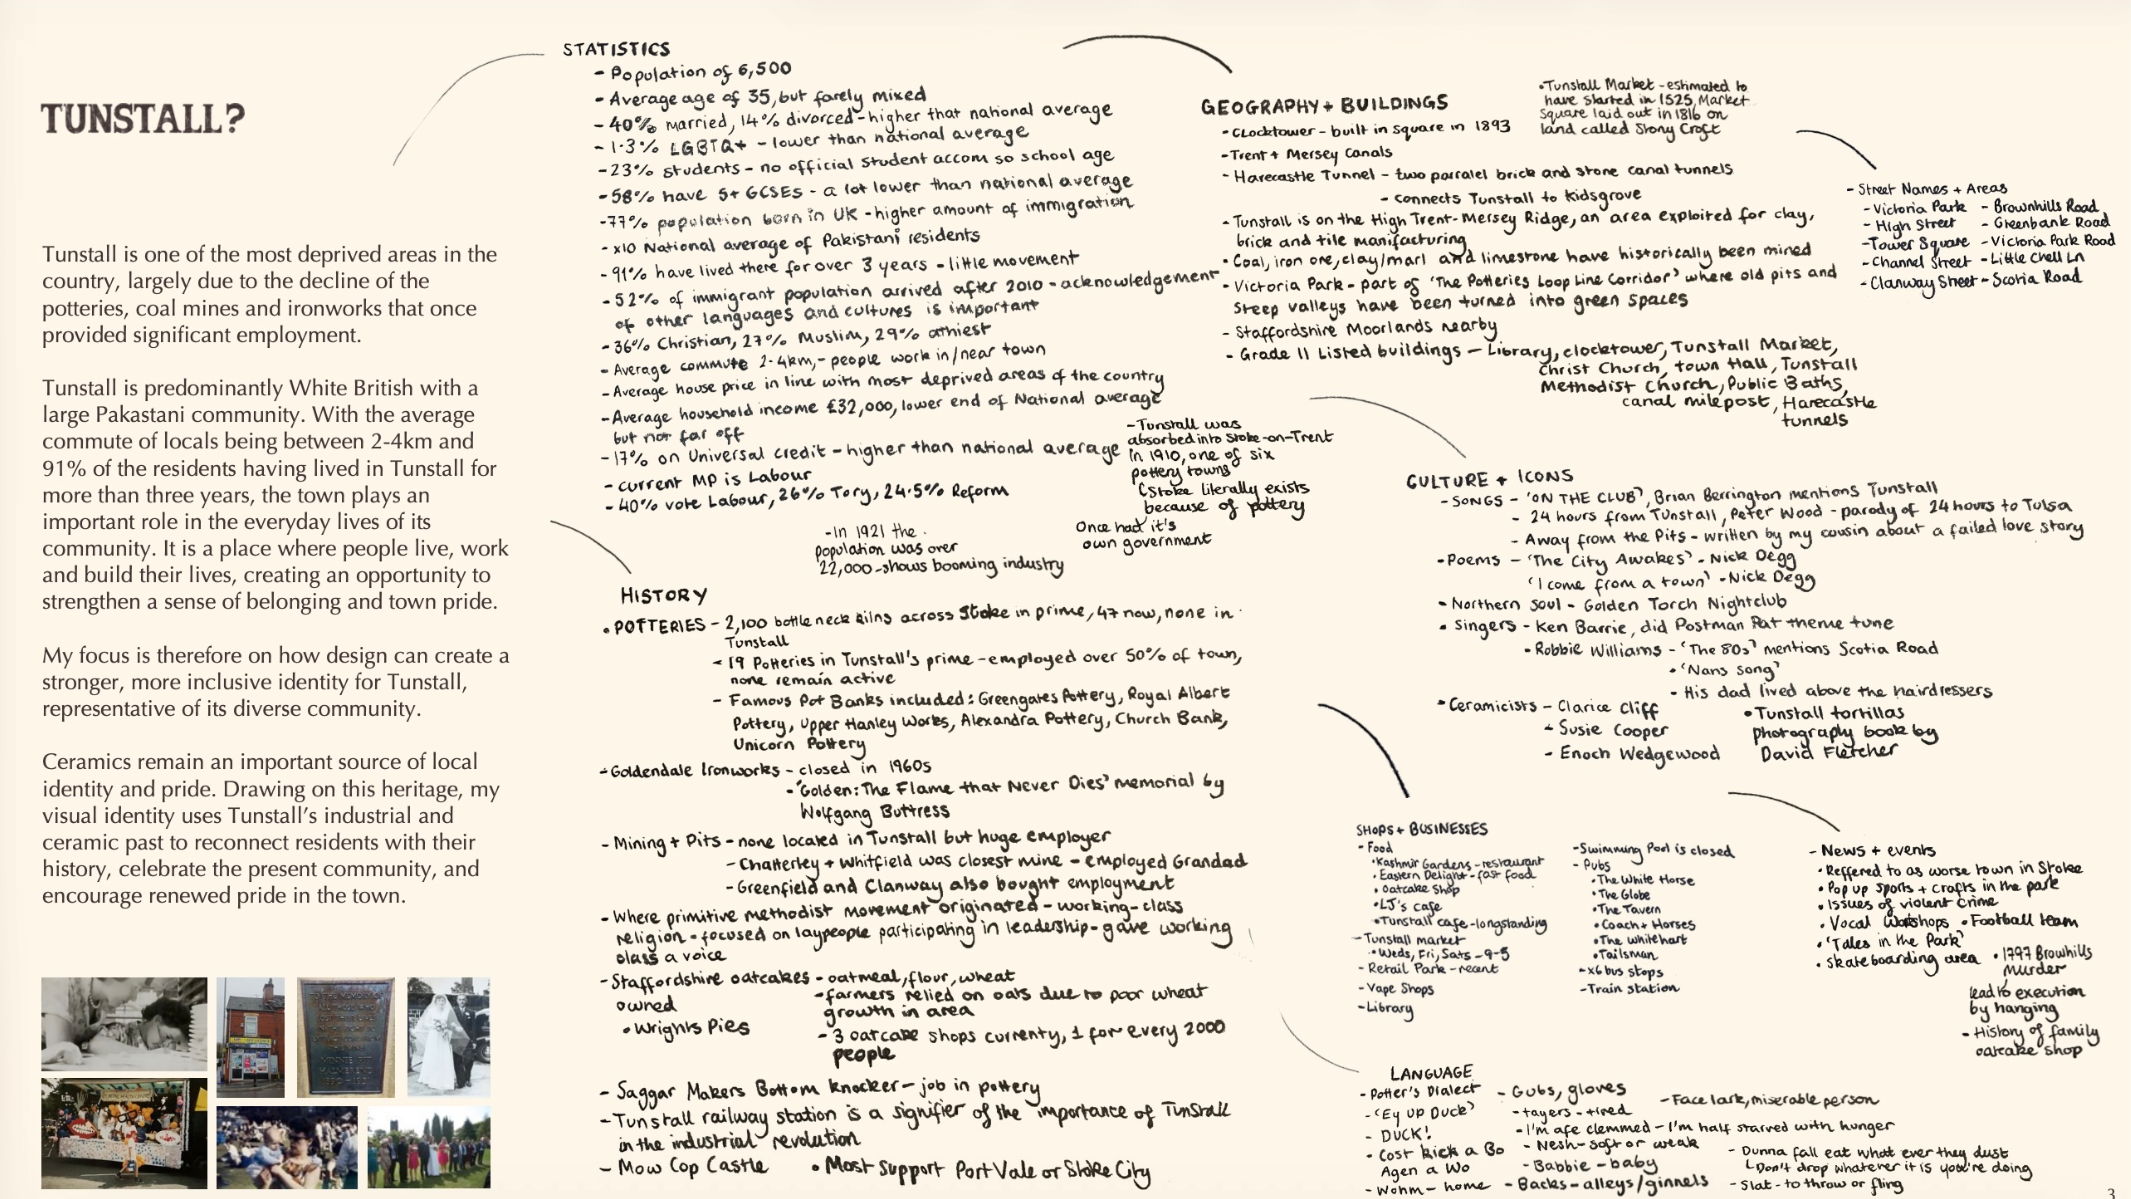 TUNSTALL?
Tunstall is one of the most deprived areas in the
country, largely due to the decline of the
potteries, coal mines and ironworks that once
provided significant employment.
Tunstall is predominantly White British with a
large Pakastani community. With the average
commute of locals being between 2-4km and
91% of the residents having lived in Tunstall for
more than three years, the town plays an
important role in the everyday lives of its
community. It is a place where people live, work
and build their lives, creating an opportunity to
strengthen a sense of belonging and town pride.
My focus is therefore on how design can create a
stronger, more inclusive identity for Tunstall,
representative of its diverse community.
Ceramics remain an important source of local
identity and pride. Drawing on this heritage, my
visual identity uses Tunstall's industrial and
ceramic past to reconnect residents with their
history, celebrate the present community, and
encourage renewed pride in the town.
STATISTICS
- Population of 6,500
- Average age of 35, but farely mixed
- 40% married, 14% divorced - higher that national average
- 1.3% LGBTQ+ - lower than national average
- 23% students - no official student accom so school age
- 58% have 5+ GCSEs - a lot lower than national average
- 77% population born in UK - higher amount of immigration
- x10 National average of Pakistani residents
- 91% have lived there for over 3 years - little movement
- 52% of immigrant population arrived after 2010 - acknowledgement
of other languages and cultures is important
- 36% Christian, 27% Muslim, 29% athiest
- Average commute 2-4km, - people work in/near town
- Average house price in line with most deprived areas of the country
- Average household income £32,000, lower end of National average
but not far off
- 17% on Universal credit - higher than national average
- current MP is Labour
- 40% vote Labour, 26% Tory, 24.5% Reform
- Tunstall was
absorbed into Stoke-on-Trent
in 1910, one of six
pottery towns
(Stoke literally exists
because of pottery
Once had it's
own government
- In 1921 the
population was over
22,000 - shows booming industry
HISTORY
• POTTERIES - 2,100 bottle neck kilns across Stoke in prime, 47 now, none in
Tunstall
- 19 Potteries in Tunstall's prime - employed over 50% of town,
none remain active
- Famous Pot Banks included: Greengates Pottery, Royal Albert
Pottery, Upper Hanley Works, Alexandra Pottery, Church Bank,
Unicorn Pottery
- Goldendale Ironworks - closed in 1960s
- 'Golden: The Flame that Never Dies' memorial by
Wolfgang Buttress
- Mining + Pits - none located in Tunstall but huge employer
- Chatterley + Whitfield was closest mine - employed Grandad
- Greenfield and Clanway also bought employment
- Where primitive methodist movement originated - working-class
religion - focused on laypeople participating in leadership - gave working
class a voice
- Staffordshire oatcakes - oatmeal, flour, wheat
owned
- farmers relied on oats due to poor wheat
growth in area
• Wrights Pies
- 3 oatcake shops currenty, 1 for every 2000
people
- Saggar Makers Bottom knocker - job in pottery
- Tunstall railway station is a signifier of the importance of Tunstall
in the industrial revolution
- Mow Cop Castle
• Most support Port Vale or Stoke City
GEOGRAPHY + BUILDINGS
- Clocktower - built in square in 1893
- Trent + Mersey Canals
- Harecastle Tunnel - two parralel brick and stone canal tunnels
- connects Tunstall to Kidsgrove
- Tunstall is on the High Trent-Mersey Ridge, an area exploited for clay,
brick and tile manifacturing
• Coal, iron ore, clay/marl and limestone have historically been mined
- Victoria Park - part of 'The Potteries Loop Line Corridor' where old pits and
steep valleys have been turned into green spaces
- Staffordshire Moorlands nearby
- Grade II Listed buildings - Library, clocktower, Tunstall Market,
Christ Church, town Hall, Tunstall
Methodist Church, Public Baths,
canal milepost, Harecastle
tunnels
• Tunstall Market - eshimated to
have started in 1525, Market
Square laid out in 1816 on
land called Stony Croft
- Street Names + Areas
- Victoria Park
- High Street
- Tower Square
- Channel Street
- Clanway Street
- Brownhills Road
- Greenbank Road
- Victoria Park Road
- Little Chell Ln
- Scotia Road
CULTURE + ICONS
- SONGS - 'ON THE CLUB', Brian Berrington mentions Tunstall
- 24 hours from Tunstall, Peter Wood - parody of 24 hours to Tulsa
- Away from the Pits - written by my cousin about a failed love story
- Poems - 'The City Awakes' - Nick Degg
'I come from a town' - Nick Degg
- Northern Soul - Golden Torch Nightclub
• Singers - Ken Barrie, did Postman Pat theme tune
- Robbie Williams - 'The 80s' mentions Scotia Road
• 'Nans Song'
- His dad lived above the hairdressers
• Ceramicists - Clarice Cliff
- Susie Cooper
- Enoch Wedgewood
• Tunstall tortillas
photography book by
David Fletcher
SHOPS + BUSINESSES
- Food
• Kashmir Gardens - restaurant
• Eastern Delight - fast food
• Oatcake shop
• LJ's cafe
• Tunstall cafe - longstanding
- Tunstall market
• Weds, Fri, Sats - 9-5
- Retail Park - recent
- Vape Shops
- Library
- Swimming Pool is closed
- Pubs
• The White Horse
• The Globe
• The Tavern
• Coach + Horses
• The whitehart
• Tailsman
- x6 bus stops
- Train station
- News + events
• Reffered to as worse town in Stoke
• Pop up sports + crafts in the park
• Issues of violent crime
• Vocal Workshops • Football team
• 'Tales in the Park'
• Skateboarding area
• 1797 Brownhills
Murder
lead to execution
by hanging
- History of family
oatcake shop
LANGUAGE
- Potter's Dialect
- 'Ey UP Duck'
- DUCK!
- Cost kick a Bo
Agen a Wo
- Wohm - home
- Gubs, gloves
- tayers - tired
- I'm afe clemmed - I'm half starved with hunger
- Nesh - soft or weak
- Babbie - baby
- Backs - alleys/ginnels
- Face lark, miserable person
- Dunna fall eat whatt ever they dust
Don't drop whatever it is you're doing
- Slat - to throw or fling
3